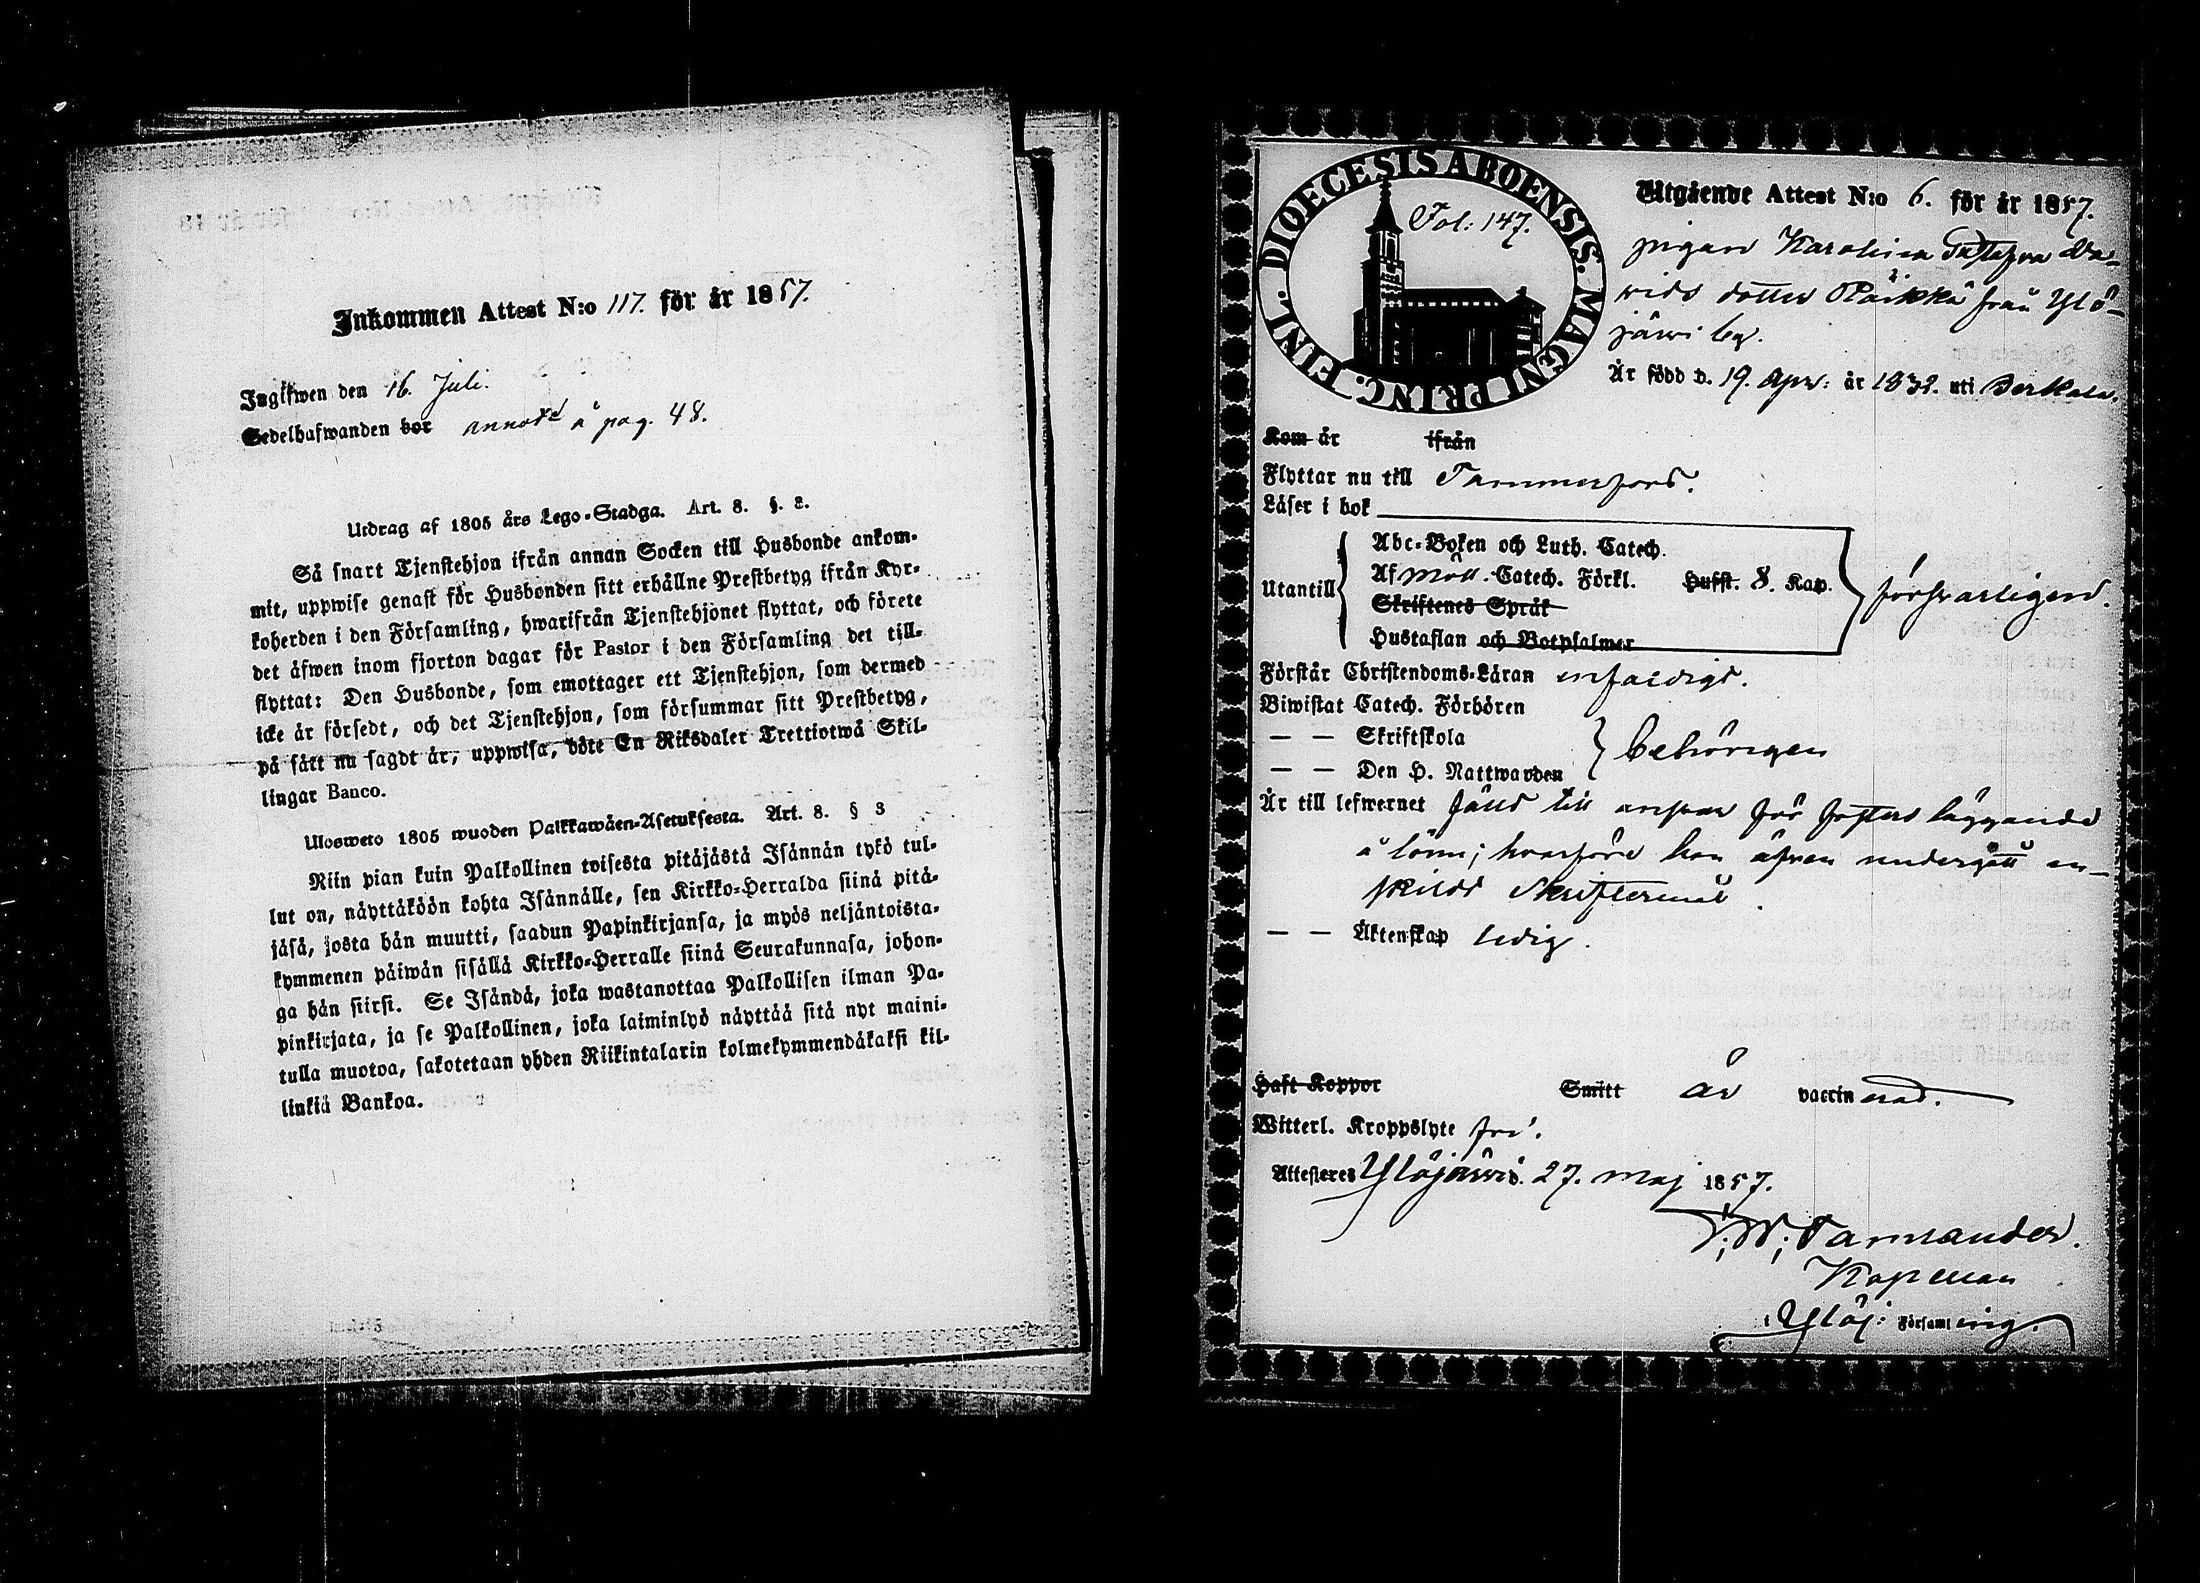 Inkommen Attest N:o 117. för år 1857.
Ingifwen den 16. Juli.
Sedelhafwanden bor annoterd å pag. 48.
Utdrag af 1805 års Lego-Stadga. Art. 8. §. 3.
Så snart Tjenstehjon ifrån annan Socken till Husbonde ankom-
mit, uppwise genast för Husbonden sitt erhållne Prestbetyg ifrån Kyr-
koherden i den Församling, hwarifrån Tjenstehjonet flyttat, och förete
det åfwen inom fjorton dagar för Pastor i den Församling det till-
flyttat: Den Husbonde, som emottager ett Tjenstehjon, som dermed
icke år försedt, och det Tjenstehjon, som försummar sitt Prestbetyg,
på sått nu sagdt år, uppwisa, böte En Riksdaler Trettiotwå Skil-
lingar Banco.
Ulosweto 1805 wuoden Palkkawåen-Asetuksesta. Art. 8. § 3
Niin pian kuin Palkollinen toisesta pitåjåstå Isånnån tykö tul-
lut on, nåyttåköön kohta Isånnålle, sen Kirkko-Herralda siinå pitå-
jåså, josta hån muutti, saadun Papinkirjansa, ja myös neljåntoista-
kymmenen påiwån sisållå Kirkko-Herralle siinå Seurakunnasa, johon-
ga hån siirsi. Se Isåndå, joka wastanottaa Palkollisen ilman Pa-
pinkirjata, ja se Palkollinen, joka laiminlyö nåyttåå sitå nyt maini-
tulla muotoa, sakotetaan yhden Riikintalarin kolmekymmendåkaksi kil-
linkiå Bankoa.
DIOECESIS ABOENSIS. MAGNI PRINC. FINL.
Fol: 147.
Utgående Attest N:o 6. för år 1857.
pigan Karolina Gustafva Da-
vids dotter Pärkkä från Ylö-
järvi by.
År född d. 19. Apr: år 1832. uti Birkala.
Kom år ifrån
Flyttar nu till Tammerfors.
Låser i bok
Utantill
Abc-Boken och Luth. Catech.
Af Möll. Catech. Förkl. Hufst. 8. Kap.
Skriftenes Språk
Hustaflan och Botpsalmer
försvarligen.
Förstår Christendoms-Låran enfaldigt.
Biwistat Catech. Förhören
— — Skriftskola
— — Den H. Nattwarden
behörigen
År till lefwernet fälld till ansvar för fosters läggande
å lönn; hvarföre hon äfven undergått en-
skildt Skriftermål.
— — Åktenskap ledig.
Haft Koppor Smitt är vaccinerad.
Witterl. Kroppslyte fri.
Attesteres Ylöjärvi d. 27. Maj 1857.
Kapellan
i Ylöj: Församling.